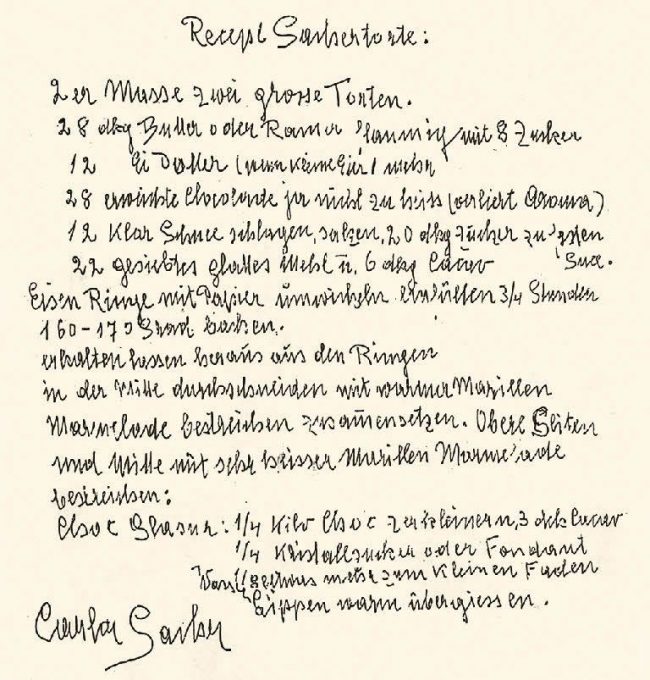 Recept Sachertorte:
2er Masse zwei grosse Torten.
28 dkg Butter oder Rama flaumig mit 8 Zucker
12 Ei Dotter (wenn kleine Eier) mehr
28 erweichte Chocolade ja nicht zu heiss (verliert Aroma)
12 Klar Schnee schlagen, salzen, 20 dkg Zucker zu
22 gesiebtes glattes Mehl u. 6 dkg Cacao
Eisen Ringe mit Papier umwickeln einfüllen 3/4 Stunden
160-175 Grad backen.
erkalten lassen heraus aus den Ringen
in der Mitte durchschneiden mit warmer Marillen
Marmelade bestreichen zusam̄ensetzen. Obere Seiten
und Mitte mit sehr heisser Marillen Marmelade
bestreichen:
Choc Glasur: 1/4 Kilo Choc zerkleinern, 3 dck Cacao
1/4 Kristallzucker oder Fondant
etwas mehr zum kleinen Faden
warm übergiessen.
Sacher